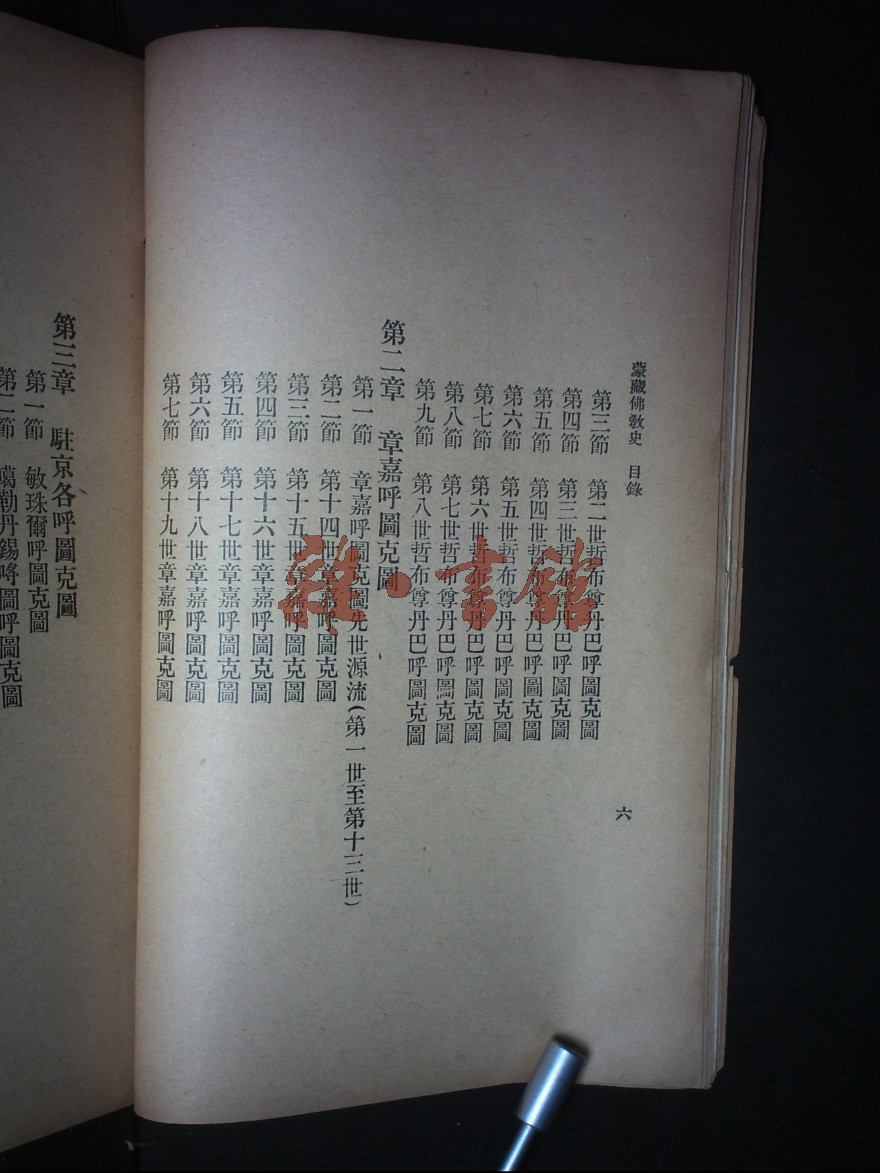 蒙藏佛敎史 目錄
六
第三節 第二世哲布尊丹巴呼圖克圖
第四節 第三世哲布尊丹巴呼圖克圖
第五節 第四世哲布尊丹巴呼圖克圖
第六節 第五世哲布尊丹巴呼圖克圖
第七節 第六世哲布尊丹巴呼圖克圖
第八節 第七世哲布尊丹巴呼圖克圖
第九節 第八世哲布尊丹巴呼圖克圖
第二章 章嘉呼圖克圖
第一節 章嘉呼圖克圖先世源流(第一世至第十三世)
第二節 第十四世章嘉呼圖克圖
第三節 第十五世章嘉呼圖克圖
第四節 第十六世章嘉呼圖克圖
第五節 第十七世章嘉呼圖克圖
第六節 第十八世章嘉呼圖克圖
第七節 第十九世章嘉呼圖克圖
第三章 駐京各呼圖克圖
第一節 敏珠爾呼圖克圖
第二節 噶勒丹錫呼圖呼圖克圖
雜·書館